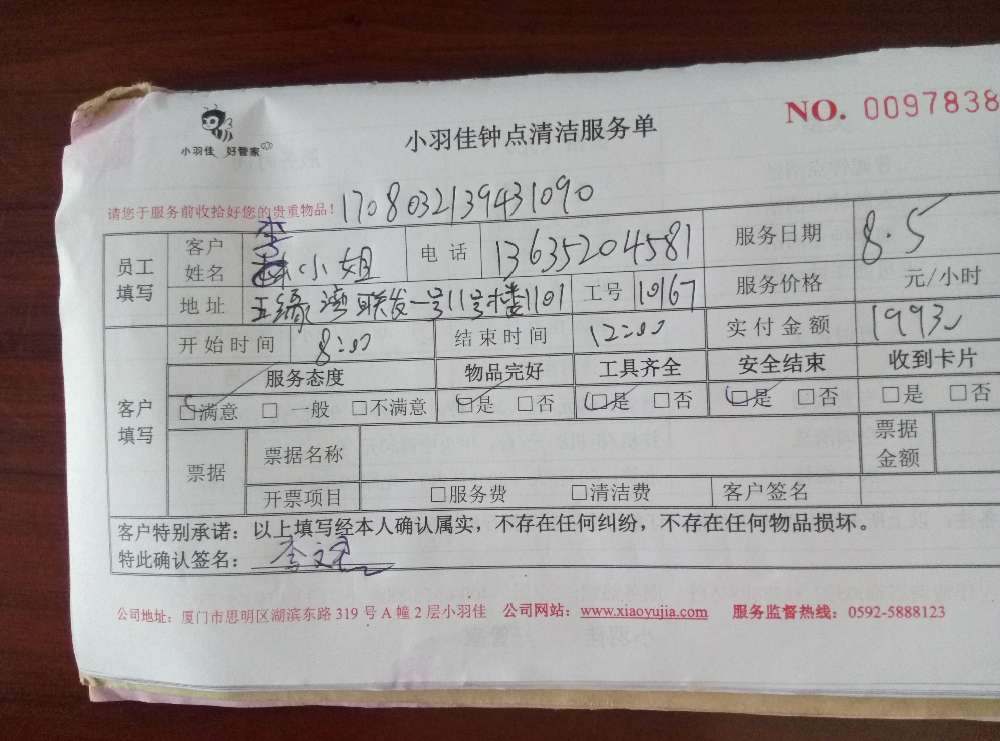 小羽佳 好管家
小羽佳钟点清洁服务单
NO. 0097838
请您于服务前收拾好您的贵重物品！
1708032139431090
员工填写
客户姓名 李小姐 电话 13635204581 服务日期 8.5
地址 五缘湾联发一号11号楼1101 工号 10167 服务价格 元/小时
客户填写
开始时间 8:00 结束时间 12:00 实付金额
服务态度 物品完好 工具齐全 安全结束 收到卡片
□满意 □一般 □不满意 □是 □否 □是 □否 □是 □否 □是 □否
票据 票据名称 票据金额
开票项目 □服务费 □清洁费 客户签名
客户特别承诺：以上填写经本人确认属实，不存在任何纠纷，不存在任何物品损坏。
特此确认签名：李
公司地址：厦门市思明区湖滨东路 319 号 A 幢 2 层小羽佳 公司网站：www.xiaoyujia.com 服务监督热线：0592-5888123